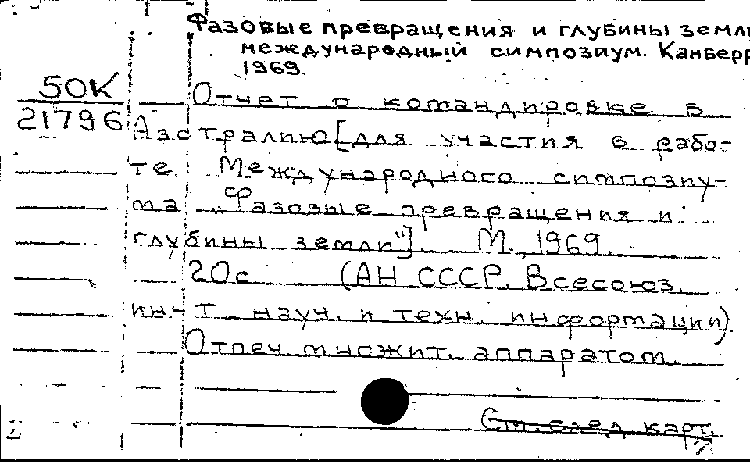 Фазовые превращения и глубины земли
международный симпозиум. Канберр
1969.
50К
21796
Отчет о командировке в
Австралию [для участия в рабо-
те Международного симпозиу-
ма "Фазовые превращения и
глубины земли"]. М., 1969.
20с (АН СССР. Всесоюз.
ин-т науч. и техн. информации).
Отпеч. множит. аппаратом.
См. след. карт.